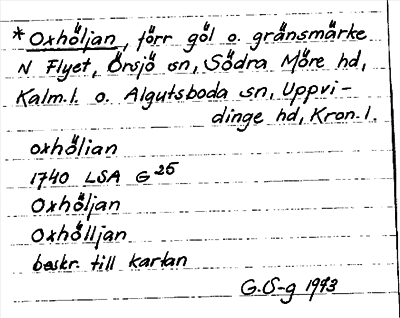 * Oxhöljan, förr göl o. gränsmärke
N Flyet, Örsjö sn, Södra Möre hd,
Kalm.l. o. Algutsboda sn, Uppvi-
dinge hd, Kron.l.
oxhölian
1740 LSA G 25
Oxhöljan
Oxhölljan
beskr. till kartan
G.Ö-g 1993